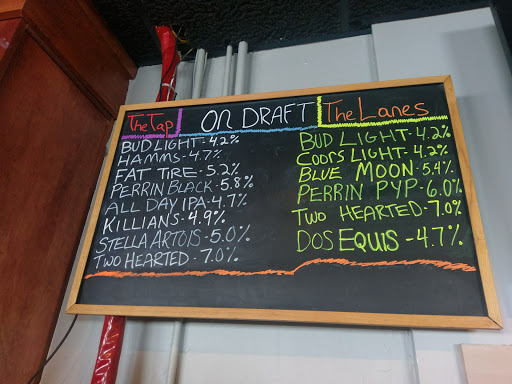 The Tap
ON DRAFT
The Lanes
BUD LIGHT - 4.2%
HAMMS - 4.7%
FAT TIRE - 5.2%
PERRIN BLACK - 5.8%
ALL DAY IPA - 4.7%
KILLIANS - 4.9%
STELLA ARTOIS - 5.0%
TWO HEARTED - 7.0%
BUD LIGHT - 4.2%
COORS LIGHT - 4.2%
BLUE MOON - 5.4%
PERRIN PYP - 6.0%
TWO HEARTED - 7.0%
DOS EQUIS - 4.7%